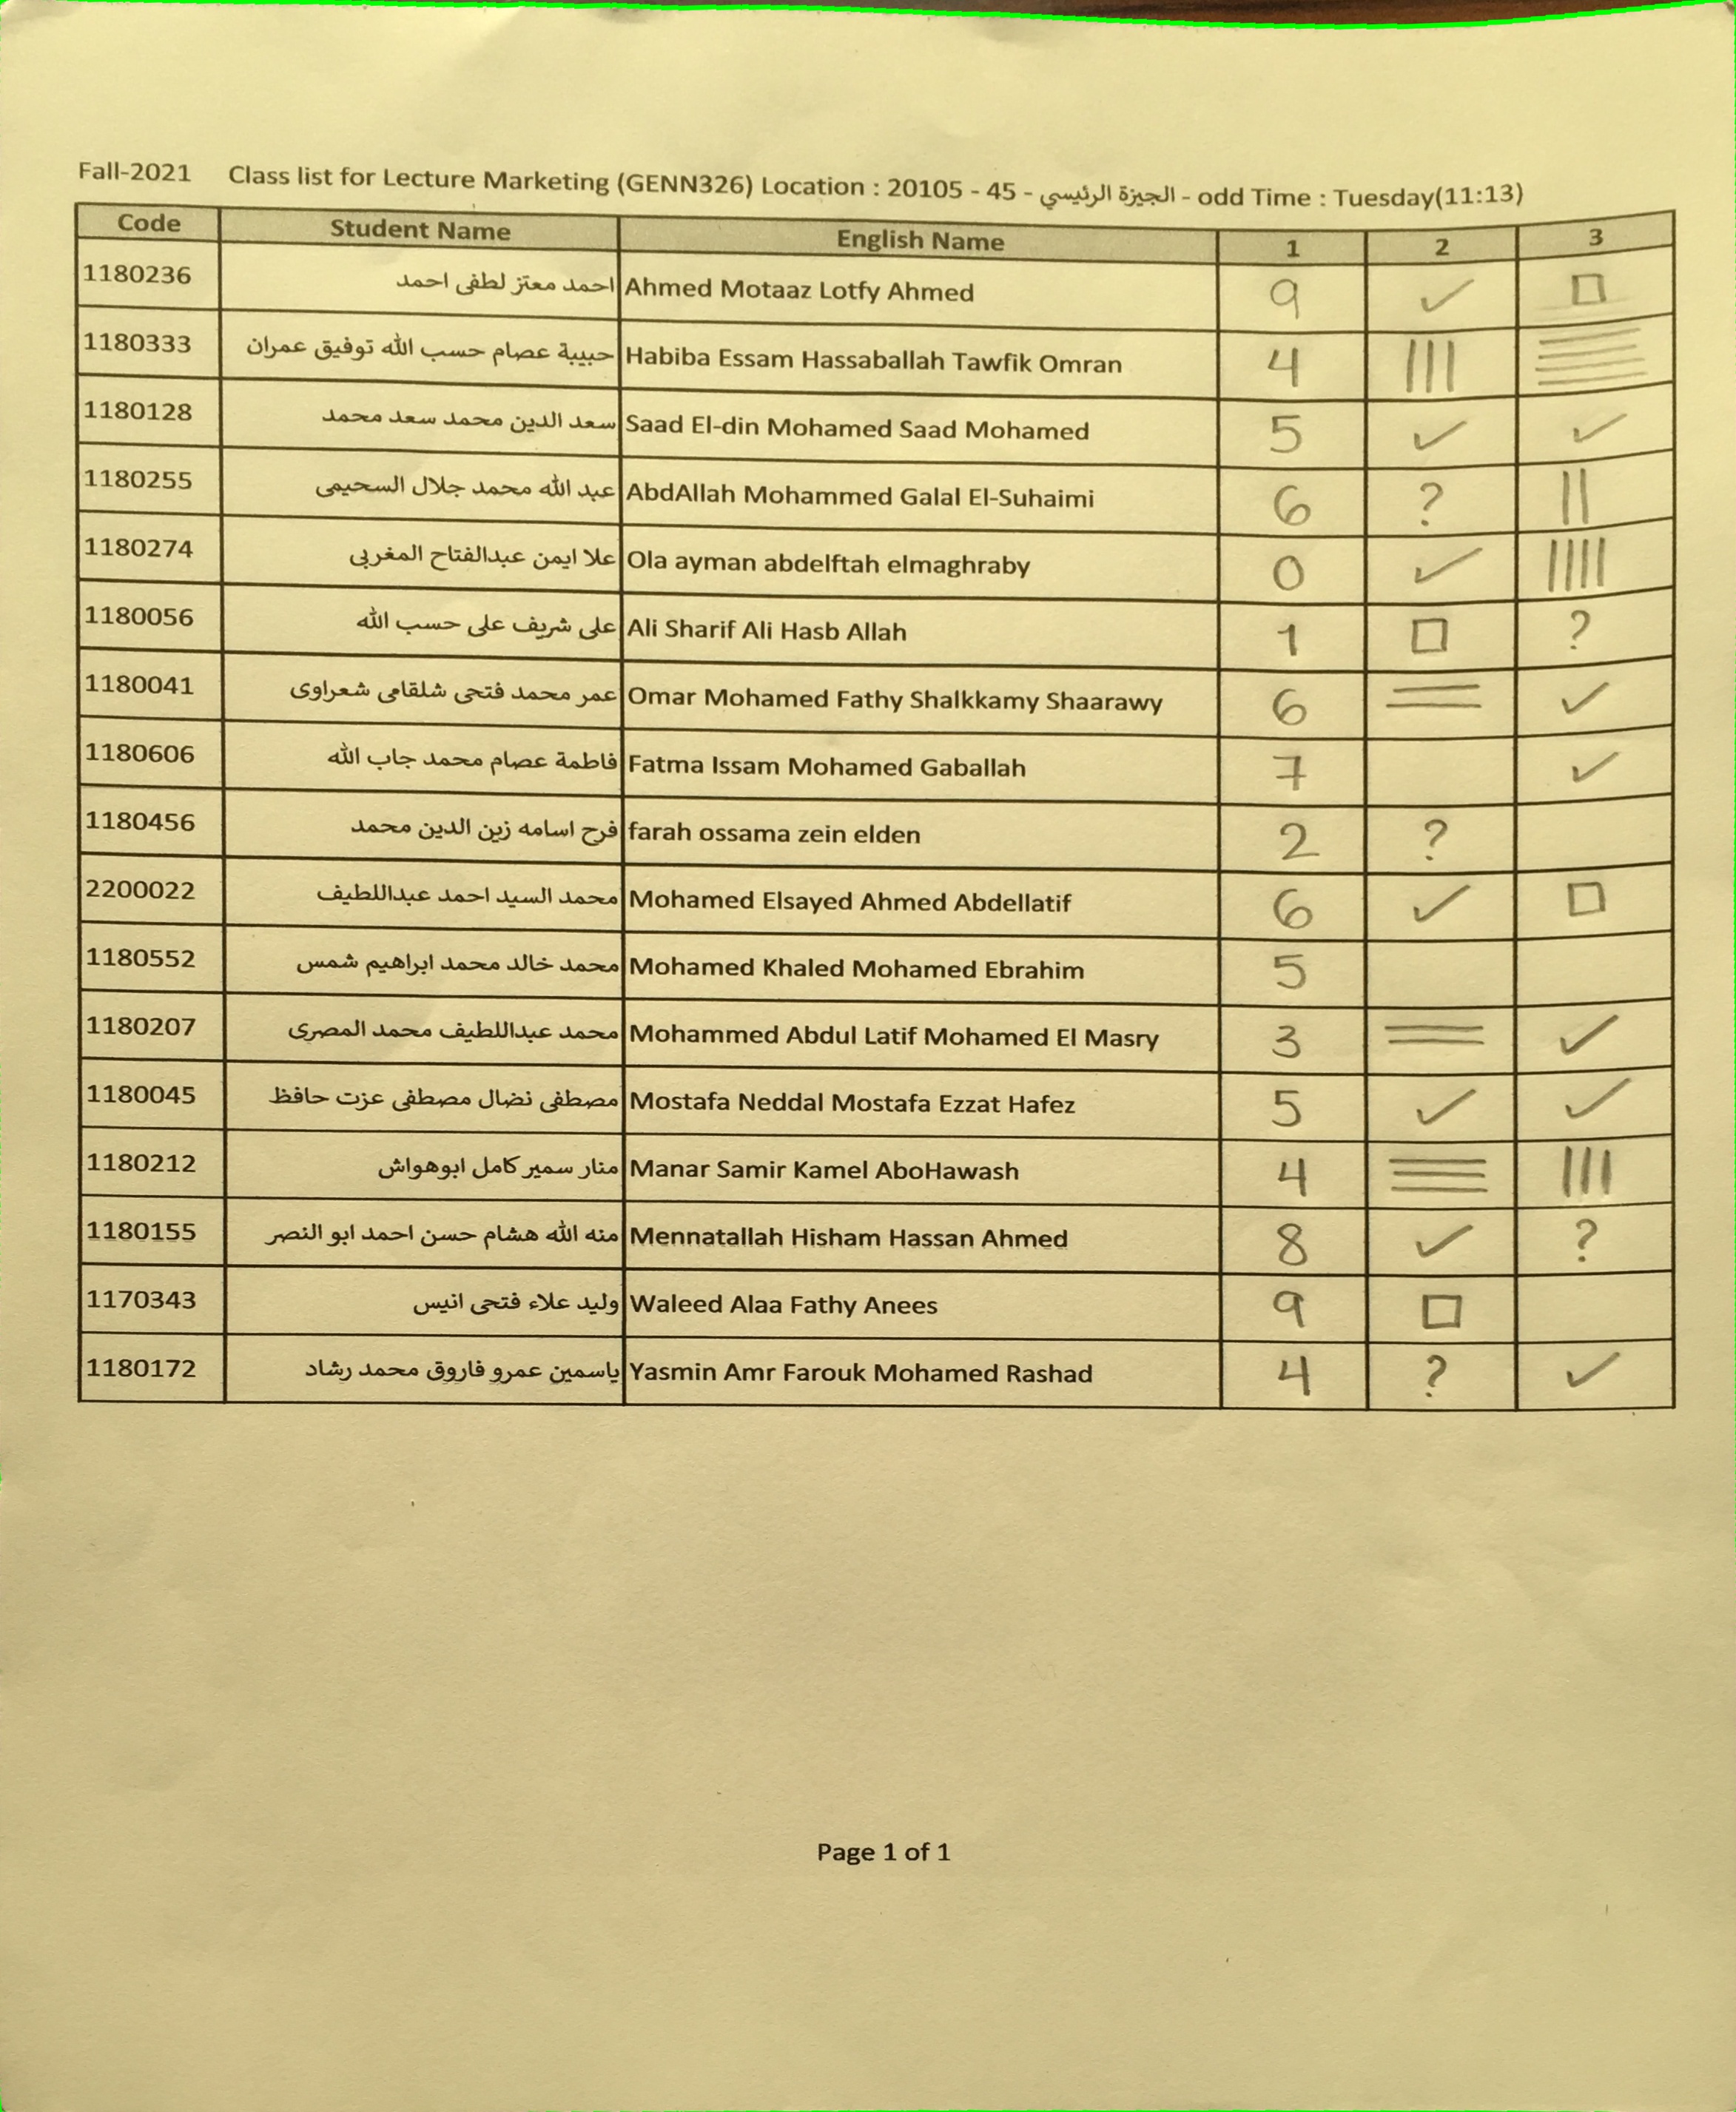 Fall-2021 Class list for Lecture Marketing (GENN326) Location : 20105 - 45 - الجيزة الرئيسي - odd Time : Tuesday(11:13)
Code Student Name English Name 1 2 3
1180236 احمد معتز لطفى احمد Ahmed Motaaz Lotfy Ahmed 9 ✓ □
1180333 حبيبة عصام حسب الله توفيق عمران Habiba Essam Hassaballah Tawfik Omran 4 |||
1180128 سعد الدين محمد سعد محمد Saad El-din Mohamed Saad Mohamed 5 ✓ ✓
1180255 عبد الله محمد جلال السحيمى AbdAllah Mohammed Galal El-Suhaimi 6 ? ||
1180274 علا ايمن عبدالفتاح المغربى Ola ayman abdelftah elmaghraby 0 ✓ ||||
1180056 على شريف على حسب الله Ali Sharif Ali Hasb Allah 1 □ ?
1180041 عمر محمد فتحى شلقامى شعراوى Omar Mohamed Fathy Shalkkamy Shaarawy 6 = ✓
1180606 فاطمة عصام محمد جاب الله Fatma Issam Mohamed Gaballah 7 ✓
1180456 فرح اسامه زين الدين محمد farah ossama zein elden 2 ?
2200022 محمد السيد احمد عبداللطيف Mohamed Elsayed Ahmed Abdellatif 6 ✓ □
1180552 محمد خالد محمد ابراهيم شمس Mohamed Khaled Mohamed Ebrahim 5
1180207 محمد عبداللطيف محمد المصرى Mohammed Abdul Latif Mohamed El Masry 3 = ✓
1180045 مصطفى نضال مصطفى عزت حافظ Mostafa Neddal Mostafa Ezzat Hafez 5 ✓ ✓
1180212 منار سمير كامل ابوهواش Manar Samir Kamel AboHawash 4 ≡ |||
1180155 منه الله هشام حسن احمد ابو النصر Mennatallah Hisham Hassan Ahmed 8 ✓ ?
1170343 وليد علاء فتحى انيس Waleed Alaa Fathy Anees 9 □
1180172 ياسمين عمرو فاروق محمد رشاد Yasmin Amr Farouk Mohamed Rashad 4 ? ✓
Page 1 of 1